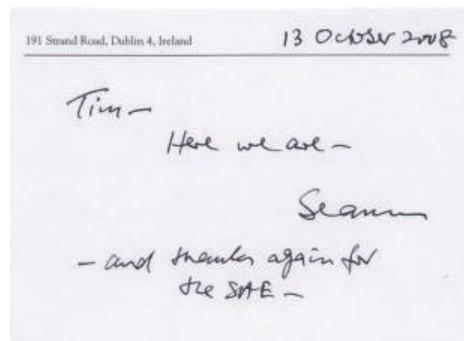 191 Strand Road, Dublin 4, Ireland
13 October 2008
Tim—
Here we are—
Seamus
— and thanks again for
the SAE—